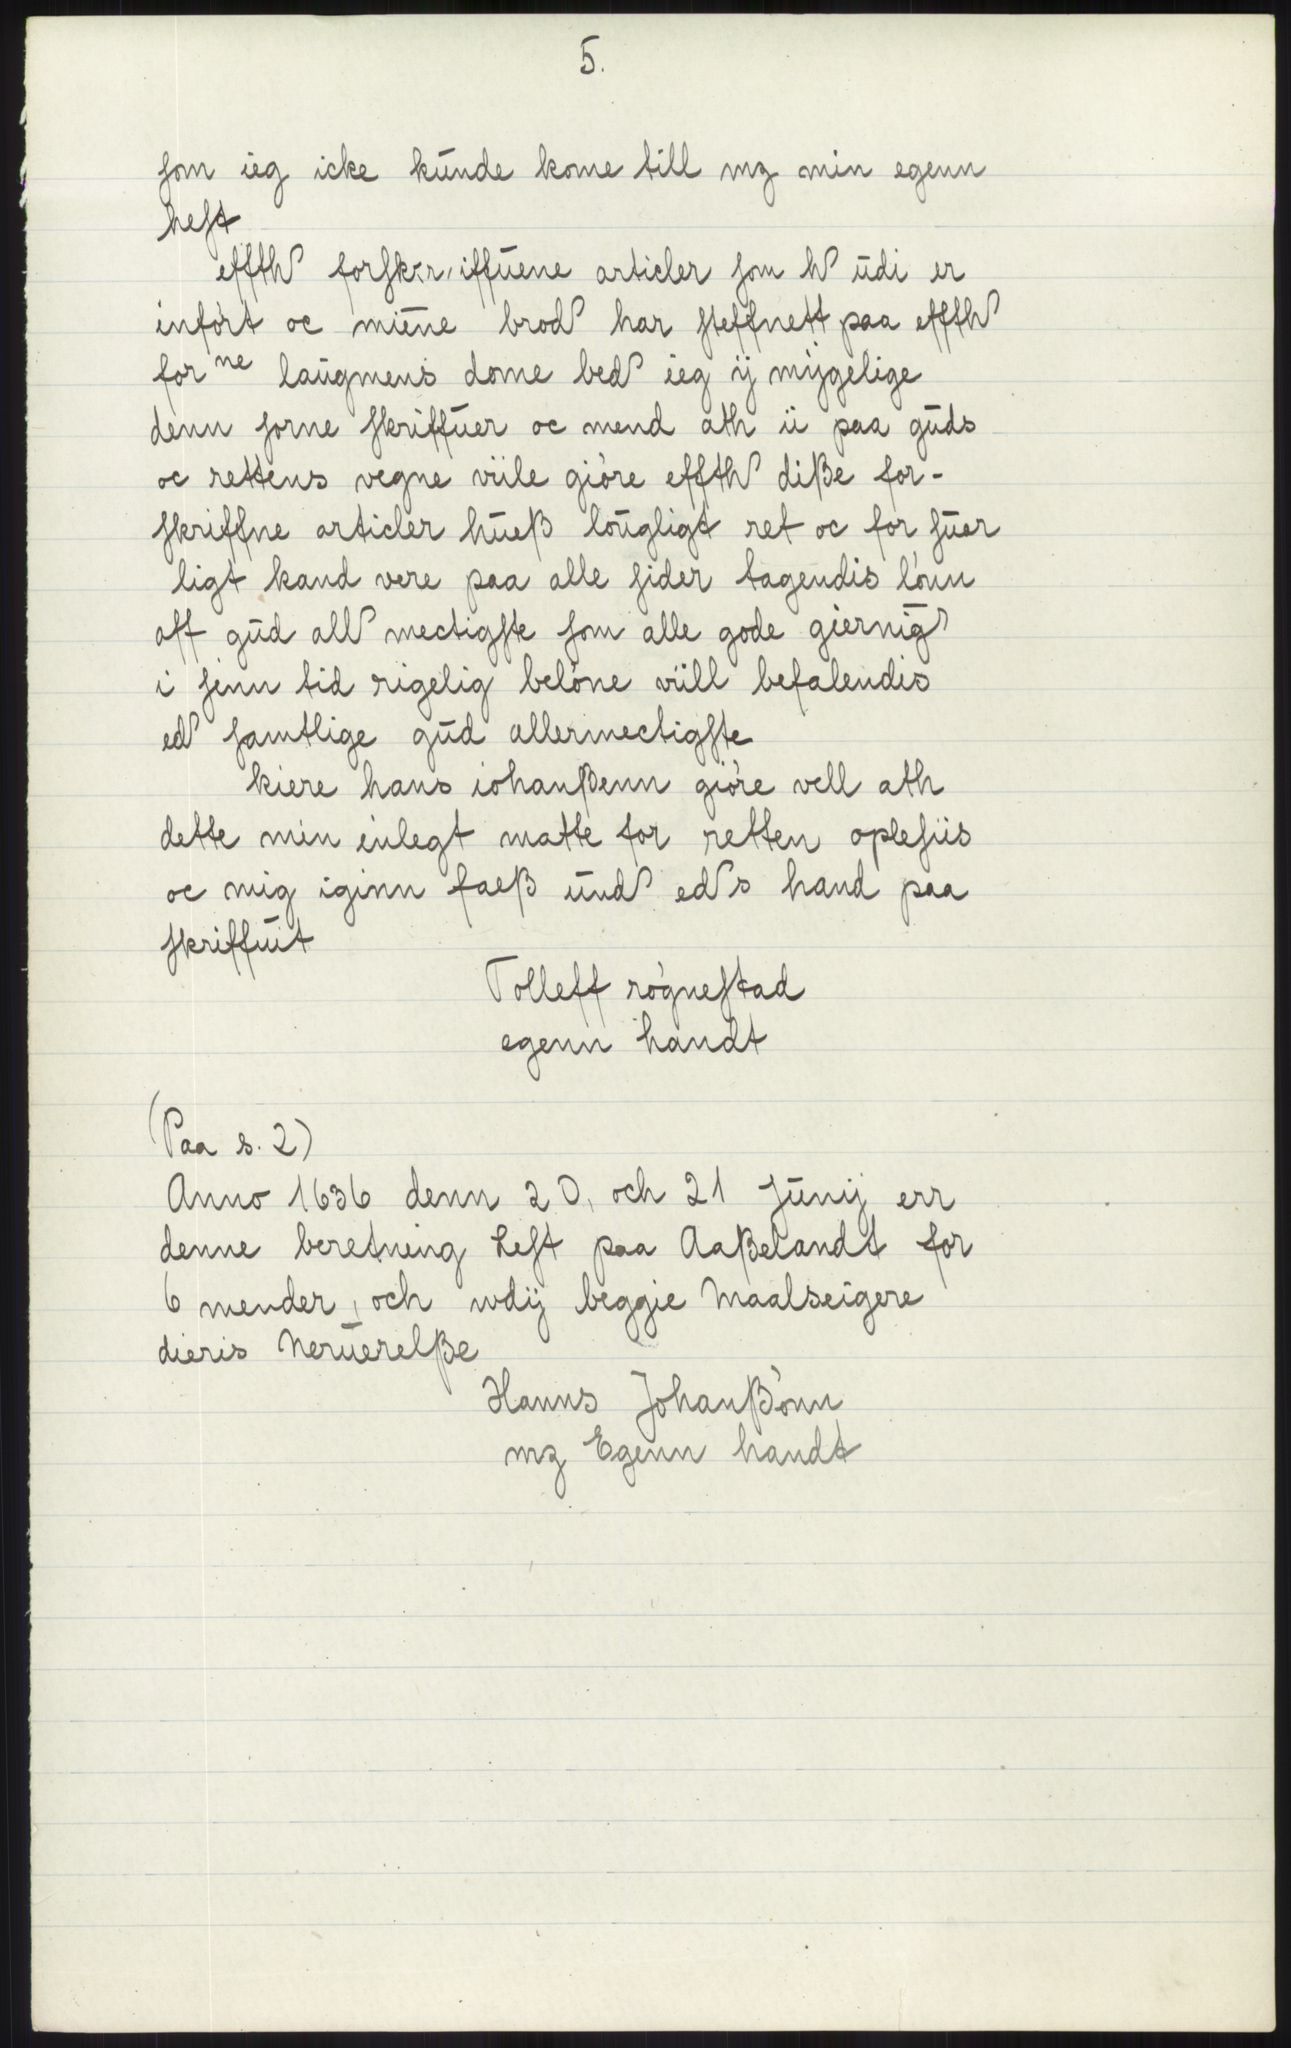 5.
som ieg icke kūnde kome till mz min egenn
hest
effth forskr, iffūene articler som h ūdi er
infört oc miēne brod har steffnett paa effth
for ne laūgmens dome bed ieg ij mijgelige
denn sorne skriffūer oc mend ath ii paa gūds
oc rettens vegne viile giöre effth diße for-
skriffne articler hūeß loūgligt ret oc for sūer
ligt kand vere paa alle sider tagendis lönn
aff gūd all mectigste som alle gode giernīg
i sinn tid rigelig belöne viill befalendis
ed samtlige gūd allermectigste
kiere hans iohanßenn giöre vell ath
dette min inlegt matte for retten oplesiis
oc mig iginn faeß ūnd eds hand paa
skriffuit
Tolleff rögnestad
egenn handt
(Paa s. 2)
Anno 1636 denn 20, och 21 Jūnij err
denne beretning Lest paa Aaßelandt for
6 mender, och wdij beggie Maalseigere
dieris Nerūerelße
Hanns Johanßönn
mz Egenn handt